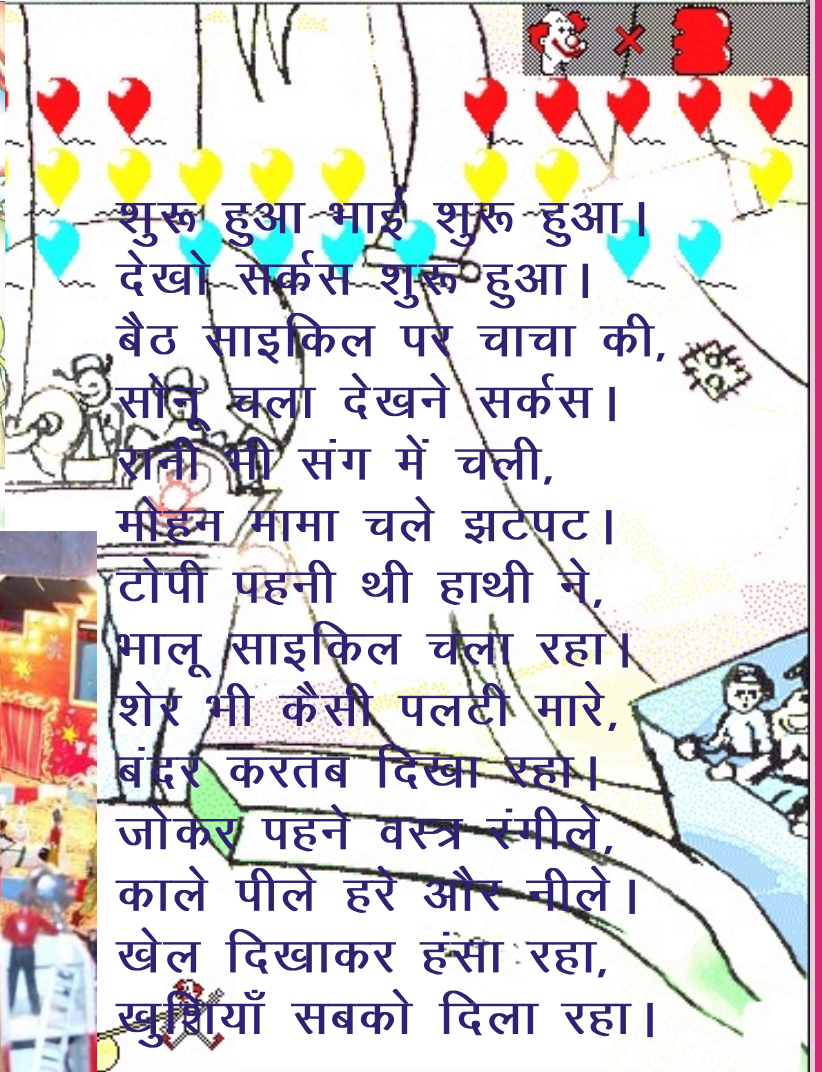 शुरू हुआ भाई शुरू हुआ।
देखो सर्कस शुरू हुआ।
बैठ साइकिल पर चाचा की,
सोनू चला देखने सर्कस।
रानी भी संग में चली,
मोहन मामा चले झटपट।
टोपी पहनी थी हाथी ने,
भालू साइकिल चला रहा।
शेर भी कैसी पलटी मारे,
बंदर करतब दिखा रहा।
जोकर पहने वस्त्र रंगीले,
काले पीले हरे और नीले।
खेल दिखाकर हंसा रहा,
खुशियाँ सबको दिला रहा।